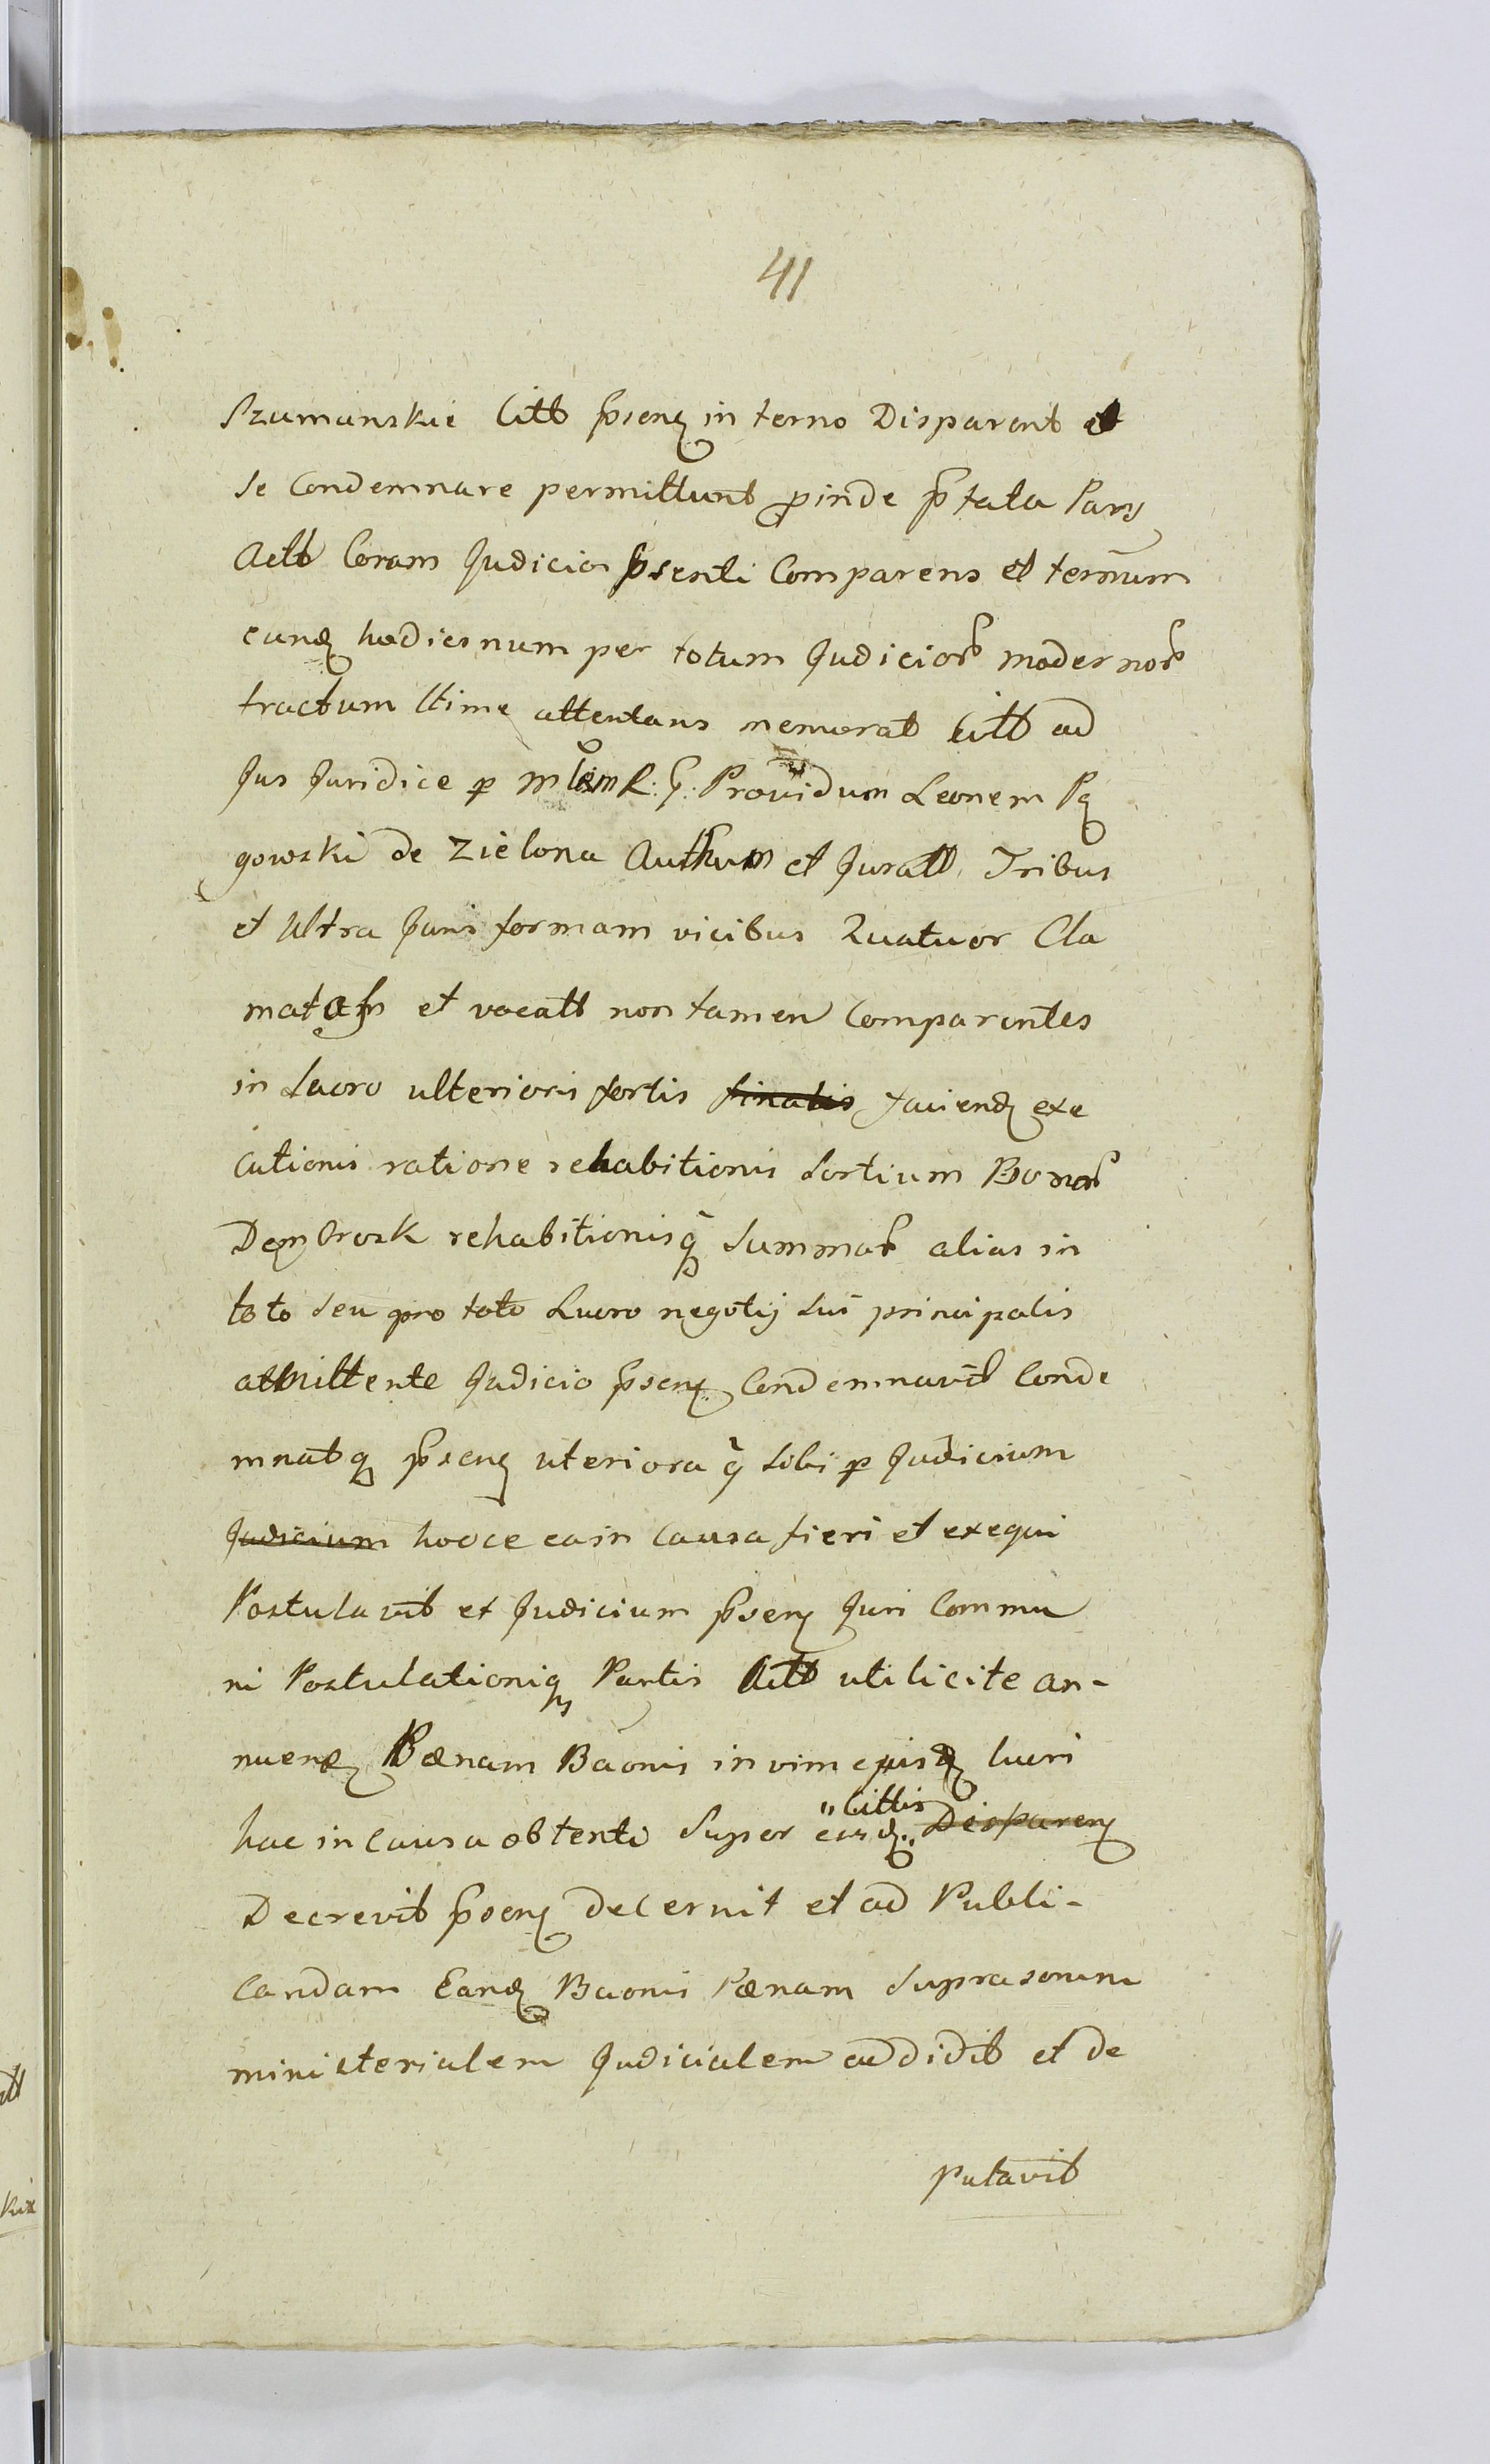 41
Szumanskie Citt pnseng in terno Disparent et
se Condemnare permittunt proinde pntata Pars
Actt Coram Judicio pnsenti Comparens et terminum
eundq hodiernum per totum Judicior modernor
tractum ltime attentans memorat Citt ad
Jus Juridice p Mlem R: G: Providum Leonem
gowski de Zielona Authum et Juratt Tribus
et Ultra Juris formam vicibus Quatuor Cla
matos et vocatt non tamen Comparentes
in Lucro ulterioris fortis finalis faciendq exe
cutionis ratione rehabitionis Sortium Bonor
rehabitionisq Summar alias in
toto seu pro toto Lucro negotij sui principalis
admittente Judicio pnseng Condemnavit Conde
mnatq pnseng uteriora q sibi p Judicium
Judicium hocce ea in Causa fieri et exequi
Postulavit et Judicium pnseng Juri Commu
ni Postulationiq Partis Actt uti licite an-
nueng Pænam Baonis in vim ejusdq lucri
hac in Causa obtenti Super eisdq " Cittis " Dispareng
Decrevit pnseng decernit et ad Publi-
Candam Eandq Baonis Pænam suprasonum
ministerialem Judicialem addidit et de
putavit